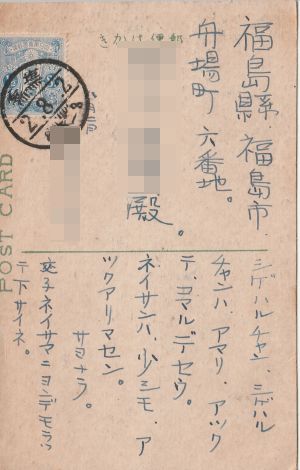 きかは便郵
福島縣.福島市.
舟場町 六番地。
殿。
シゲハルチャン、シゲハル
チャンハ、アマリ、アツク
テ、ヨマルデセウ。
ネイサンハ、少シモ、ア
ツクアリマセン。
サヨナラ。
子ネイサマニヨンデモラッ
テ下サイネ。
POST CARD
2.8.